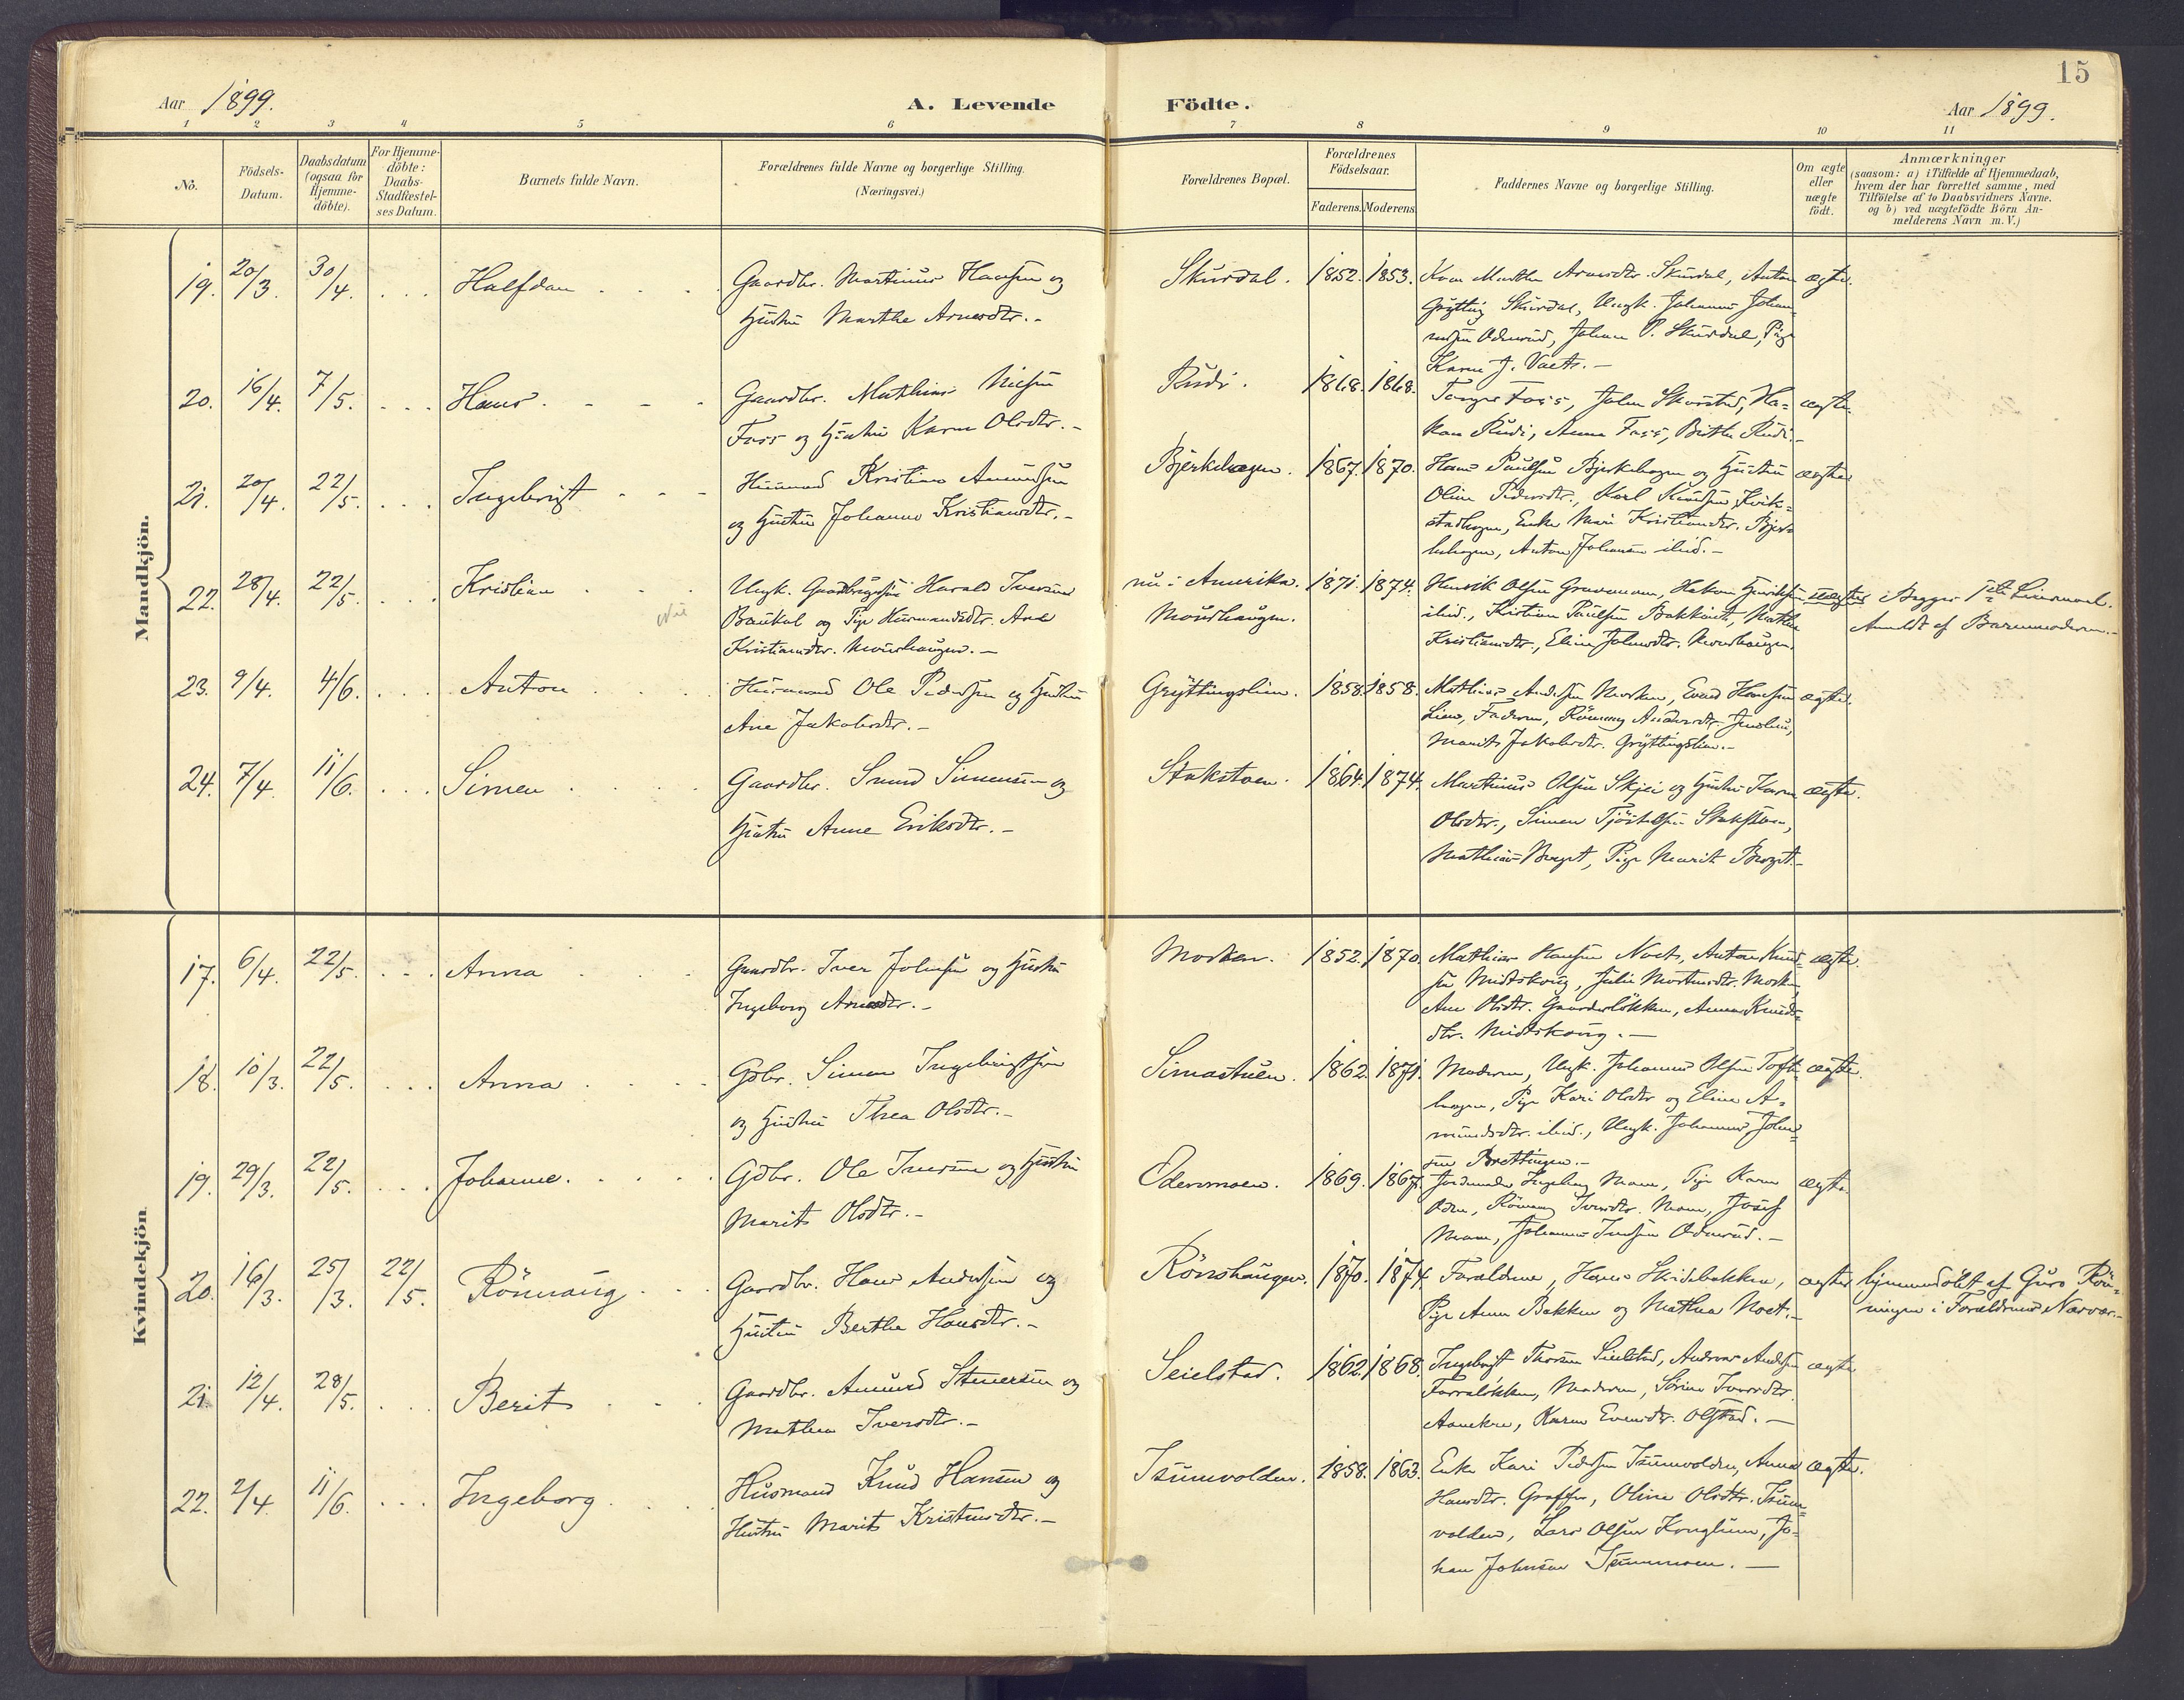 15
Aar 1899.
A. Levende Födte.
Aar 1899.
1 2 3 4 5 6 7 8 9 10 11
No.
Födsels-Datum.
Daabsdatum (ogsaa for Hjemme-döbte).
For Hjemme-döbte: Daabs-Stadfæstel-ses Datum.
Barnets fulde Navn.
Forældrenes fulde Navne og borgerlige Stilling.
(Næringsvei.)
Forældrenes Bopæl.
Forældrenes Födselsaar.
Faderens. Moderens.
Faddernes Navne og borgerlige Stilling.
Om ægte eller uægte födt.
Anmærkninger
(saasom: a) i Tilfælde af Hjemmedaab,
hvem der har forrettet samme, med
Tilföielse af to Daabsvidners Navne.
og b) ved uægtefödte Börn An-
melderens Navn m. V.)
Mandkjön.
19. 20/3. 30/4. ... Halfdan Gaardbr. Martinus Hansen og Skurdal. 1852. 1853. Kone Marthe Arnesdtr. Skurdal, Anton ægte.
Hustru Marthe Arnesdtr.-
Grytting Skurdal, Ungk. Johannes Johan-
nesen Odnrud, Johan P. Skurdal, Pige
Karen J. Vaets.-
20. 16/4. 7/5. ... Hans. Gaardbr. Mathias Nilsen Rudi. 1868. 1868. Torger Foss, John Skarstad, Ha= ægte.
Foss og Hustru Karen Olsdtr.-
kon Rudi, Anne Foss, Birthe Rudi.-
21. 20/4. 22/5. ... Ingebrigt Husmand Kristian Amundsen Bjerkehagen. 1867. 1870. Hans Paulsen Bjerkehagen og Hustru ægte
og Hustru Johanne Kristiansdtr.-
Oline Pedersdtr., Karl Knudsen Kvik-
stadhagen, Enke Mari Kristiansdtr. Bjer-
kehagen, Anton Johansen ibid.-
22. 28/4. 22/5. ... Kristian Ungk. Harald Iversen nu i Amerika. 1871. 1874. Henrik Olsen Gravemoen, Hakon Henriksen uægte Begges 1ste Leiermaal.
Baukal og Pige Husmandsdtr. Ane Moushaugen.
ibid., Kristian Paulsen Bakkint, Mathea Anmeldt af Barnemoderen.-
Kristiansdtr. Moushaugen.-
Kristiansdtr., Eline Johnsdtr. Moushaugen.
23. 9/4. 4/6. ... Anton Husmand Ole Pedersen og Hustru Gryttingslien. 1858. 1858. Mathias Andersen Morken, Hansen ægte.
Ane Jakobsdtr.-
Lien, Faderen, Rönnaug
Marit Jakobsdtr. Gryttingslien.-
24. 7/4. 11/6. ... Simen Gaardbr. Simensen og Stakstoen. 1864. 1874. Martinus Olsen Skjei og Hustru Karen ægte.
Hustru Anne Eriksdtr.-
Olsdtr., Simen Stakstoen,
Mathias Berget, Pige Marit Berget.-
Kvindekjön.
17. 6/4. 22/5. ... Anna Gaardbr. Iver Johnsen og Hustru Morken. 1852. 1870. Mathias Hansen Noet, Anton Knud- ægte.
Ingeborg Arnesdtr.-
sen Midtskoug, Julie Mortensdtr. Morken,
Ane Olsdtr. Gaarderløkken, Anna Knuds-
dtr. Midtskoug.-
18. 10/3. 22/5. ... Anna Gdbr. Simen Ingebrigtsen Simastuen. 1862. 1871. Moderen, Ungk. Johannes Olsen Toft- ægte.
og Hustru Thea Olsdtr.-
hagen, Pige Kari Olsdtr og Eline A-
mundsdtr. ibid., Ungk. Johannes John-
sen Brettingen.-
19. 29/3. 22/5. ... Johanne. Gdbr. Ole Iversen og Hustru Odenmoen. 1869. 1867. Jordmoder Ingeborg Moen, Pige Karen ægte
Marit Olsdtr.-
Oden, Rönnaug Iversdtr. Moen, Josef
Moen, Johannes Odnrud.-
20. 16/3. 25/3. 22/5. Rönnaug Gaardbr. Hans Andersen og Rönshaugen. 1870. 1874. Forældrene, Hans Skridebakken, ægte hjemmedöbt af Guro Rön-
Hustru Berthe Hansdtr.-
Pige Anne Bakken og Mathea Noet.- ningen i Forældrenes Nærvær.-
21. 12/4. 28/5. ... Berit Gaardbr. Amund Stenersen og Seielstad. 1862. 1868. Ingebrigt Thoresen Seielstad, Andreas Andersen ægte
Mathea Iversdtr.-
Moderen, Sörine Iversdtr.
Aanekre, Karen Evensdtr. Olstad.-
22. 2/4. 11/6. ... Ingeborg. Husmand Knud Hansen og Isumvolden. 1858. 1863. Enke Kari Pedersen Isumvolden, Anna ægte.
Hustru Marit Kristensdtr.-
Hansdtr. Graffer, Oline Olsdtr. Isum-
volden, Lars Olsen Konglien, Jo-
han Johnsen Isummoen.-